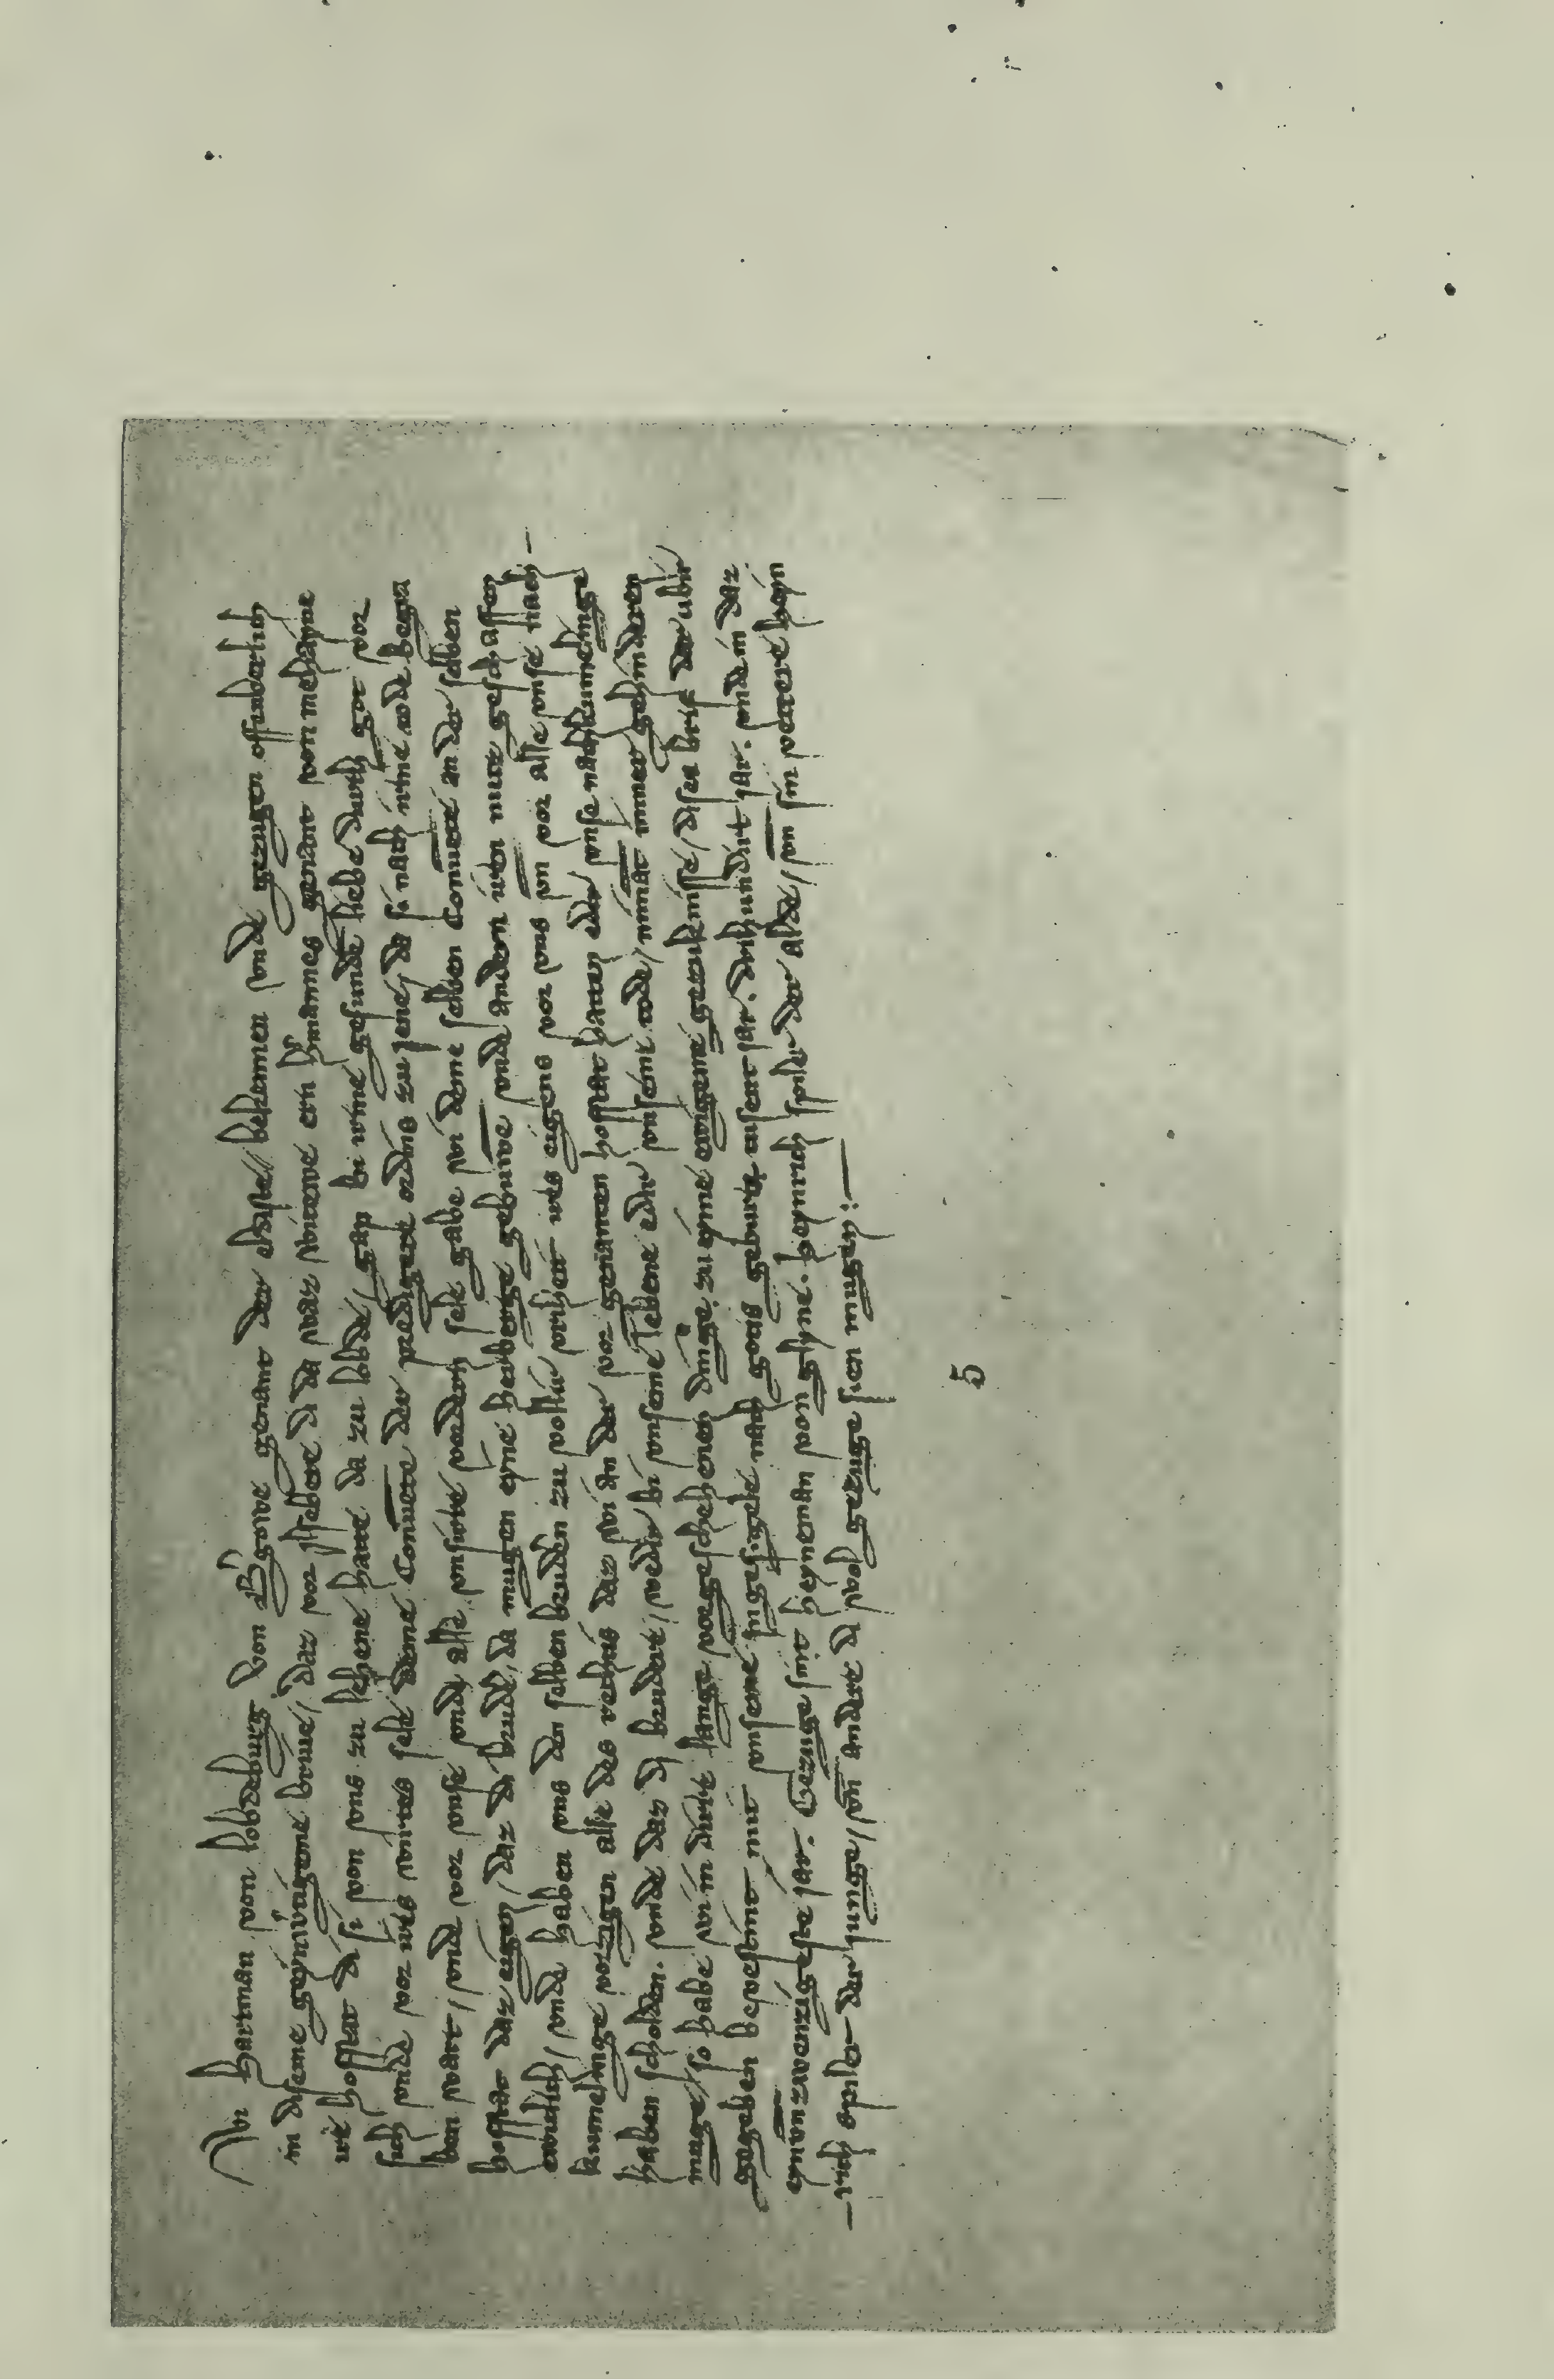 Wi hartman von lobdeburg von B͛gowe genant der eldiste / bekennen vnde gezugen offinberlich
in diseme geynwrtigeme briue / daz vor
hofstat di si von vns zu lehene hatte da zu lobde / gap bi irme gesunde liebe durch got vor
sich vnde vor irs wirtes sele deme Conuente der predigere ordins zu iene / da si nach irme tode begra
ben wart / vnde vor vnse vnde alle vnsir vordern sele gabe wi deme selben Conuente an der selben
hofstat daz eigen / daz di brudere da mugen eyne herberge gebuwe vnde andern iren nutz geschaffen
vnde haben vns den selben brudern zu vorstin irs eigens vor vns vn vor alle vnse nach—
kumelinge vorzigen alle des rechtis daz wi an der vor genanten hofstat hatten eder vnse nachkumelinge
haben scholden. vnde daz di brudere / weder bi vnseme lebene eder vnseme tode / nimant immer gehinderen
muge / so habe wi in dirre lange vorgeschehenen dinge. zu eyme ewigeme gezuknisse / disen brif der ubir
gegeben bevestint mit vnseme ingesigele nach gotis geburte tusent iar. drihundirt iar. vnde in daz
eynvnzwenzigeste iar. Gezuge sint heyneman von glyne. heynrich spiler der alde / vn sin vettere heyn
—rich spiler der iunge / vn andere di wol gezuge sien mugen :—
5